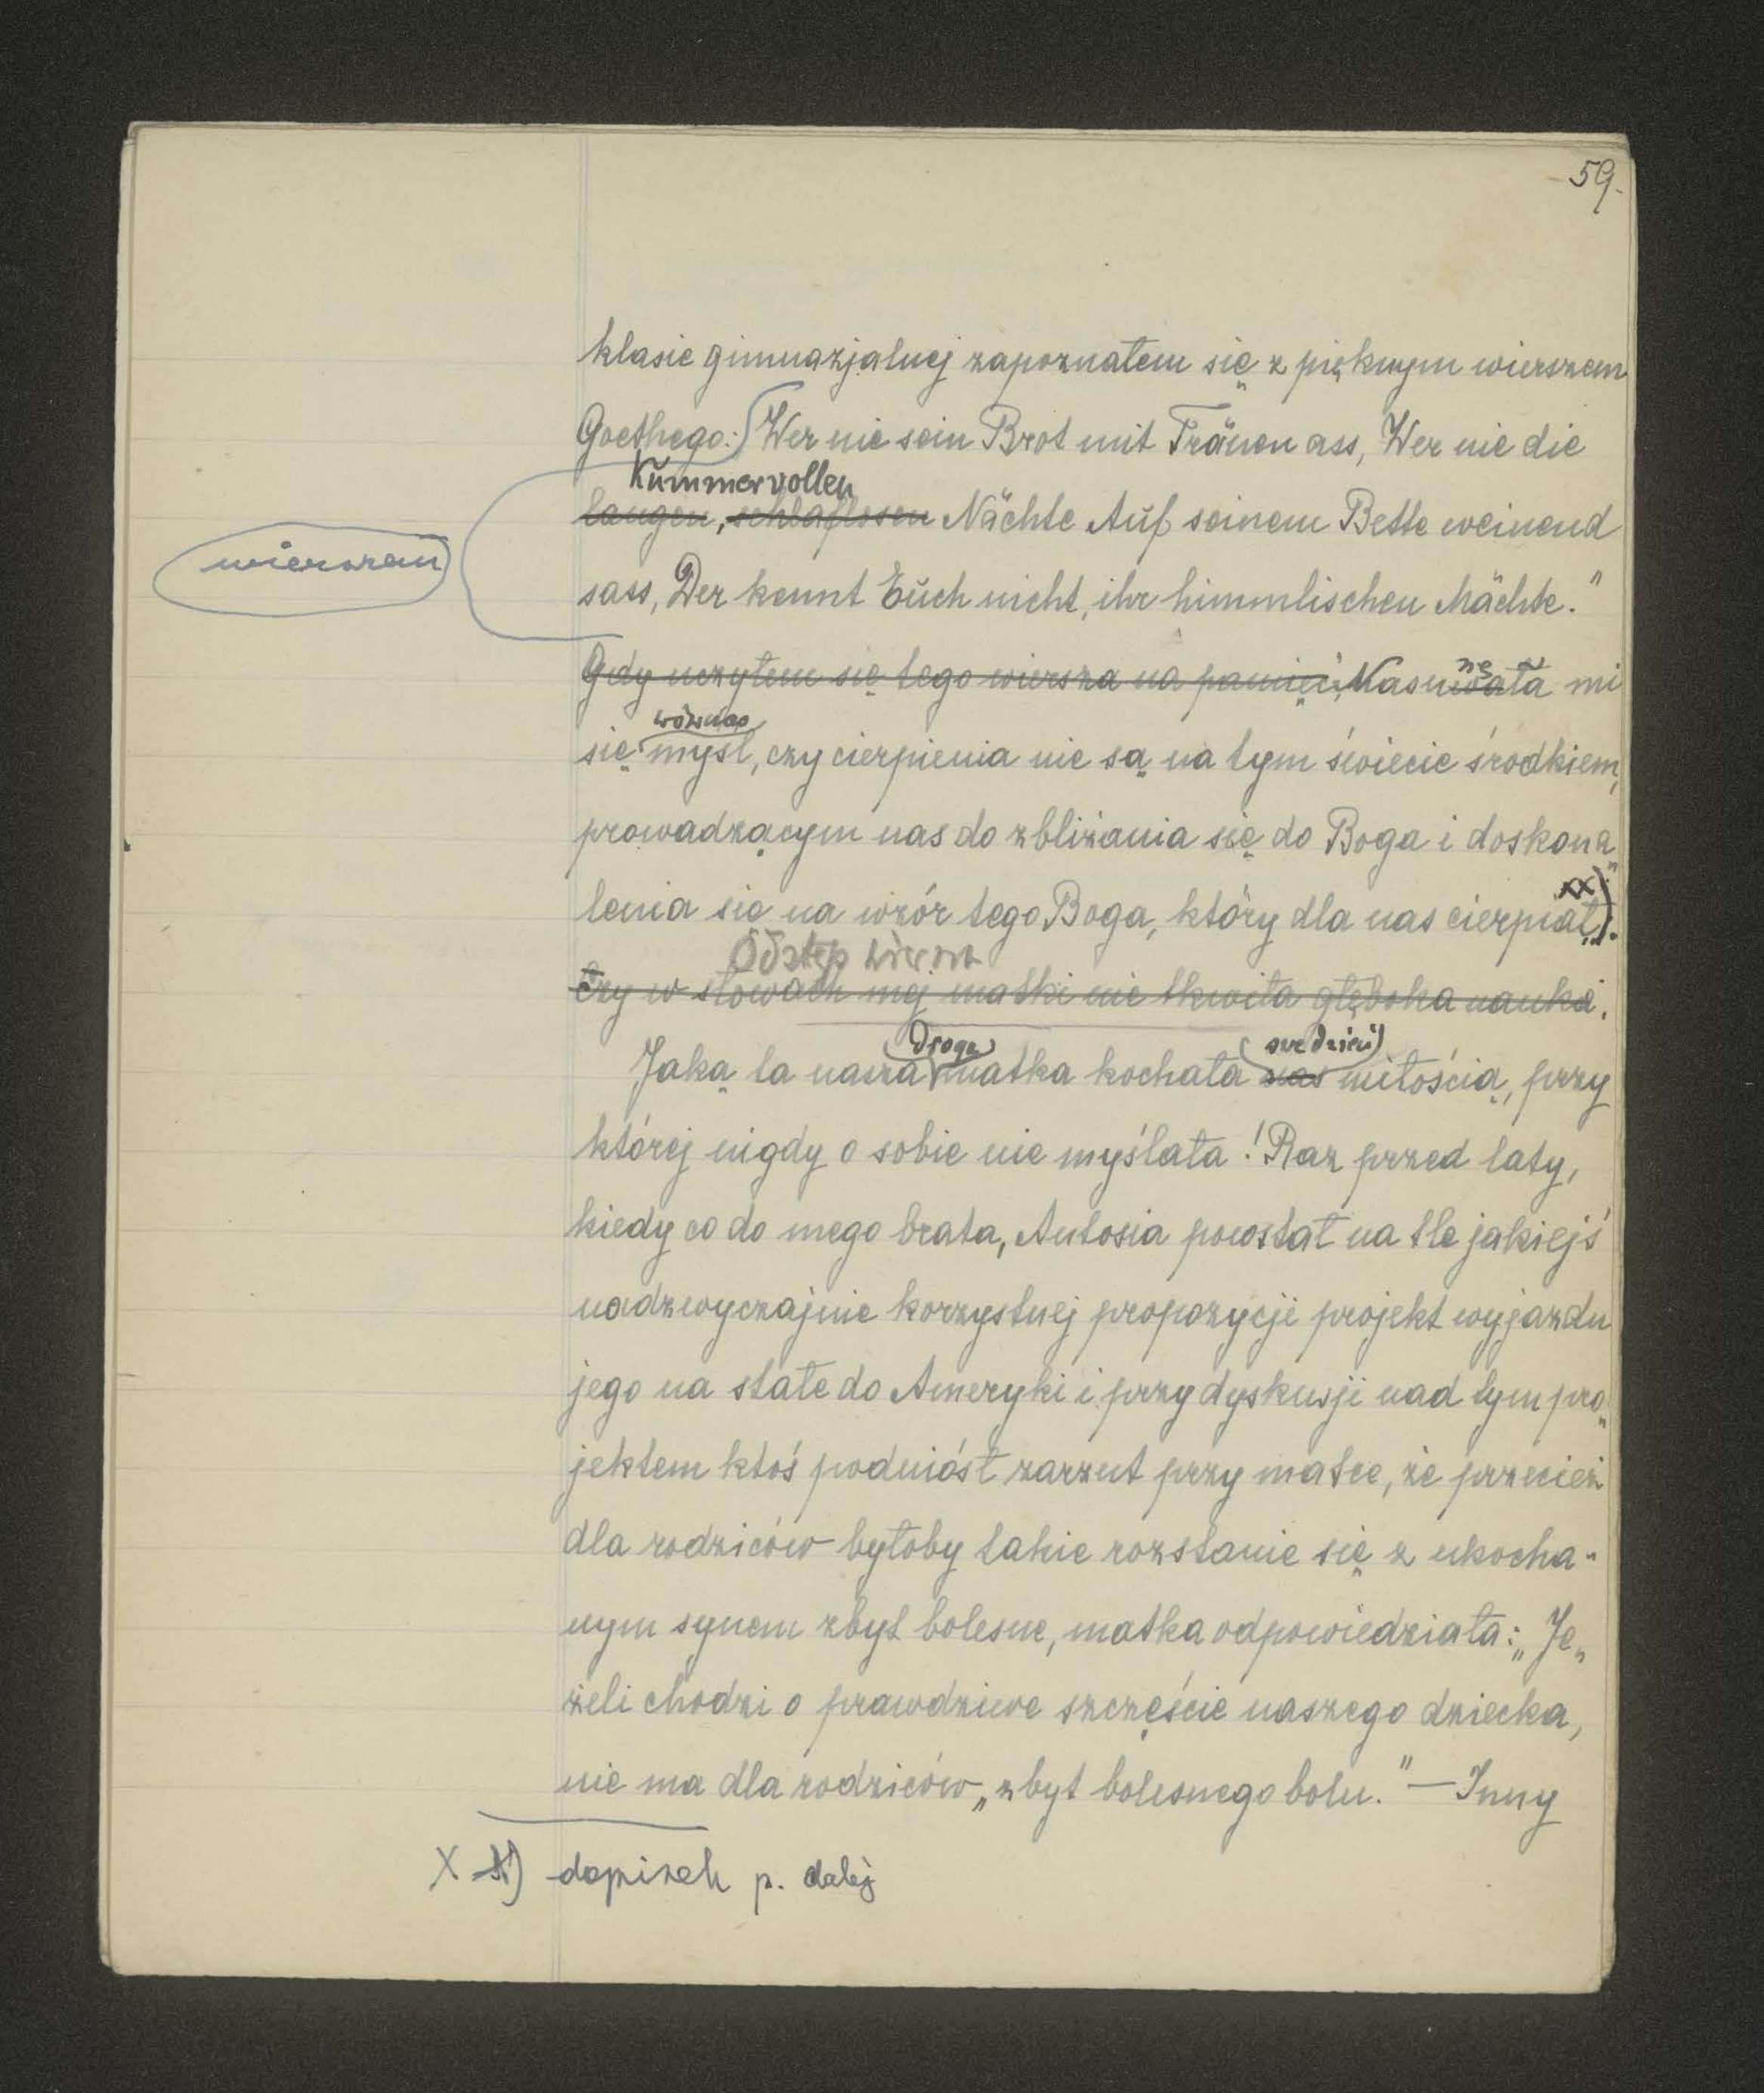 59.
klasie gimnazjalnej zapoznałem się z pięknym wierszem
Goethego: Wer nie sein Brot mit Tränen ass, Wer nie die
Kummervollen
langen, schlaflosen Nächte Auf seinem Bette weinend
wierszem
sass, Der kennt Euch nicht, ihr himmlischen Mächte."
Gdy uczyłem się tego wiersza na pamięć, Nasuwała mi
nę
wówczas
się myśl, czy cierpienia nie są na tym świecie środkiem,
prowadzącym nas do zbliżania się do Boga i doskona„
lenia się na wzór tego Boga, który dla nas cierpiał xx).
Odstęp wiersz
Czy w słowach mej matki nie tkwiła głęboka nauka.
droga swe dzieci
Jaką ta nasza matka kochała nas miłością, przy
której nigdy o sobie nie myślała! Raz przed laty,
kiedy co do mego brata, Antosia powstał na tle jakiejś
nadzwyczajnie korzystnej propozycji projekt wyjazdu
jego na stałe do Ameryki i przy dyskusji nad tym pro„
jektem ktoś podniósł zarzut przy matce, że przecież
dla rodziców byłoby takie rozstanie się z ukocha-
nym synem zbyt bolesne, matka odpowiedziała: „Je„
żeli chodzi o prawdziwe szczęście naszego dziecka,
nie ma dla rodziców „zbyt bolesnego bolu." — Inny
X x) dopisek p. dalej